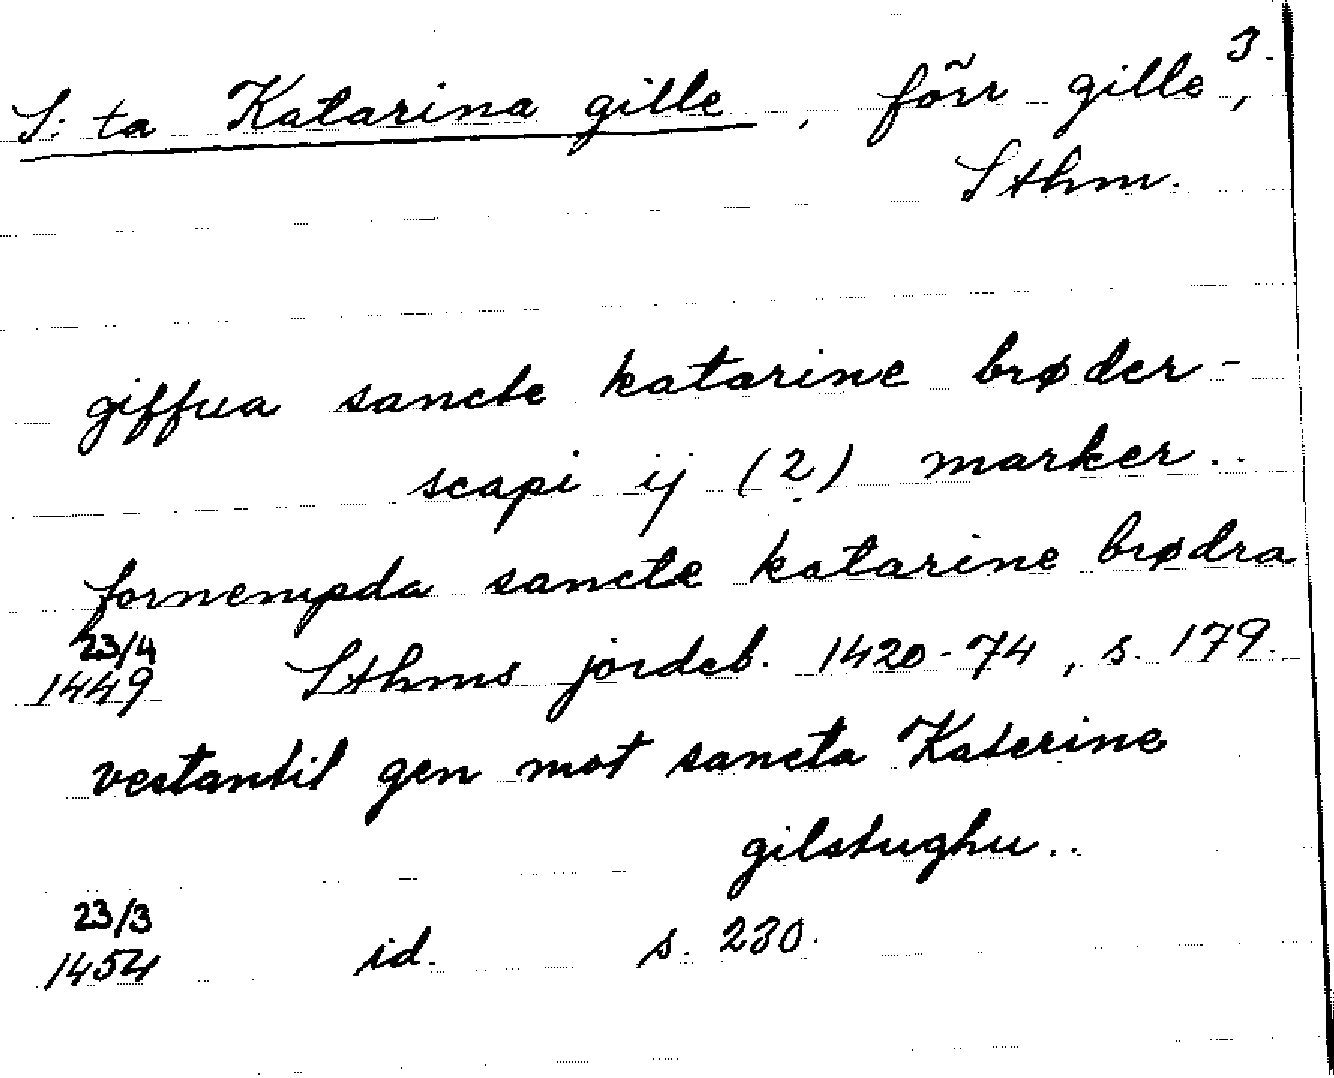 3.
S:ta Katarina gille, förr gille,
Sthm.
giffua sancte katarine brøder-
scapi ij (2) marker..
fornempda sancte katarine brødra
23/4
1449 Sthms jordeb. 1420-74, s. 179.
vestantil gen mot sancta Katerine
gilstughu..
23/3
1454 id. s. 230.